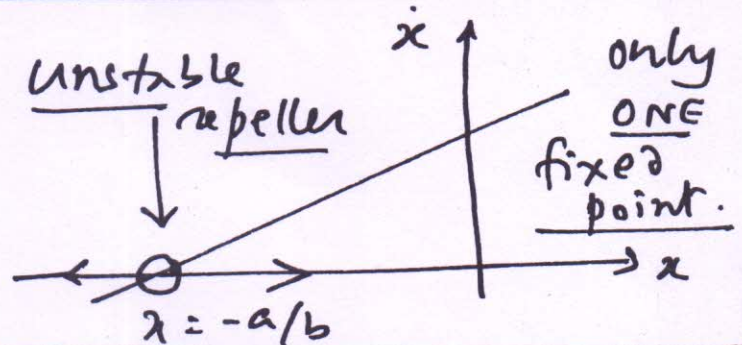 unstable
repeller
ẋ
only
ONE
fixed
point.
x
x = -a/b